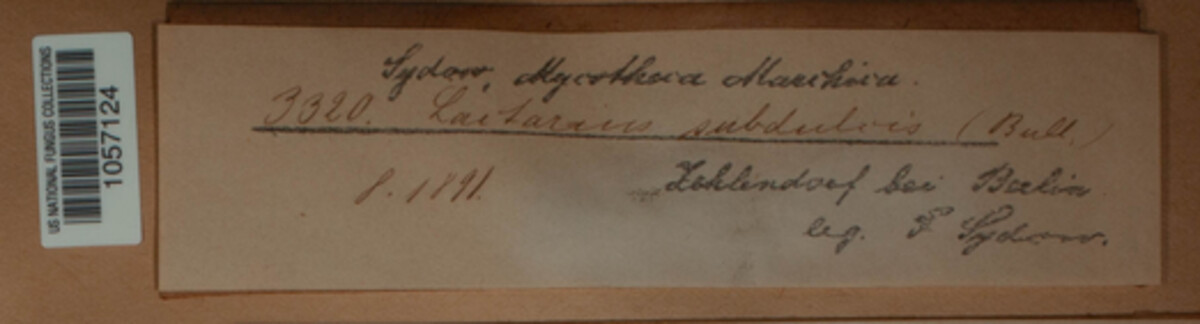 US NATIONAL FUNGUS COLLECTIONS
1057124
Sydow, Mycotheca Marchica.
3320. Lactarius subdulcis (Bull.)
8. 1891. Zehlendorf bei Berlin
leg. P Sydow.